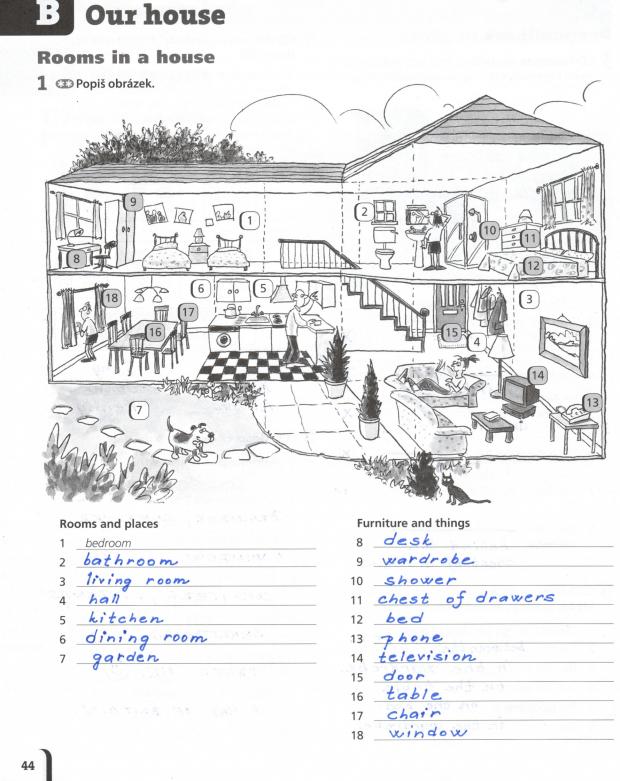 B Our house
Rooms in a house
1 Popiš obrázek.
9
1
2
10
11
8
12
18
6
5
3
17
16
15
4
14
7
13
Rooms and places
1 bedroom
2 bathroom
3 living room
4 hall
5 kitchen
6 dining room
7 garden
Furniture and things
8 desk
9 wardrobe
10 shower
11 chest of drawers
12 bed
13 phone
14 television
15 door
16 table
17 chair
18 window
44